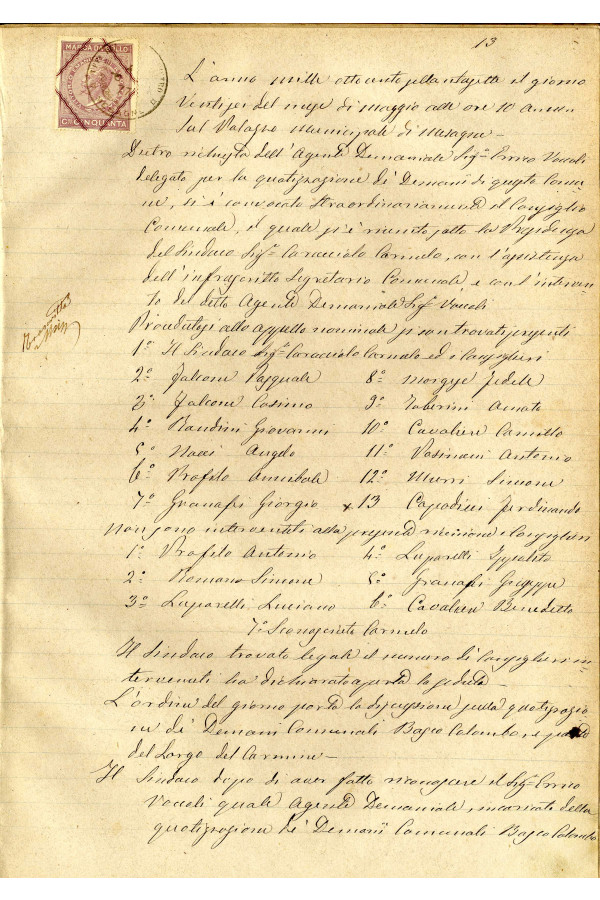 13
MARCA DA BOLLO
CINQUANTA
L'anno mille ottocento settantasette il giorno
Ventisei del mese di Maggio alle ore 10 Antim
Sul Palazzo Municipale di Mesagne =
Dietro richiesta dell'Agente Demaniale Sig.r Errico Voccoli
delegato per la quotizzazione de' Demanî di questo Comu-
ne, si è convocato straordinariamente il Consiglio
Comunale, il quale si è riunito sotto la Presidenza
del Sindaco Sig.r Caracciolo Carmelo, con l'assistenza
dell'infrascritto Segretario Comunale, e con l'interven-
to del detto Agente Demaniale Sig.r Voccoli
Procedutosi allo appello nominale si son trovati presenti
1° Il Sindaco Sig.r Caracciolo Carmelo ed i Consiglieri
2° Falcone Pasquale 8° Morgese Fedele
3° Falcone Cosimo 9° Amati
4° Bandini Giovanni 10° Cavaliere Camillo
5° Nacci Angelo 11° Antonio
6° Profilo Annibale 12° Murri Simone
7° Granafei Giorgio x 13 Capodieci Ferdinando
Non sono intervenuti alla presente riunione i Consiglieri
1° Profilo Antonio 4° Luparelli Ippolito
2° Romano Simone 5° Granafei Giuseppe
3° Luparelli Luciano 6° Cavaliere Benedetto
7° Sconosciuto Carmelo
Il Sindaco trovato legale il numero di Consiglieri in-
tervenuti ha dichiarato aperta la seduta =
L'ordine del giorno porta la discussione sulla quotizzazio
ne de' Demanî Comunali Bosco Colombo, e
del Largo del Carmine =
Il Sindaco dopo di aver fatto riconoscere il Sig.r Errico
Voccoli quale Agente Demaniale, incaricato della
quotizzazione de' Demanî Comunali Bosco Colombo